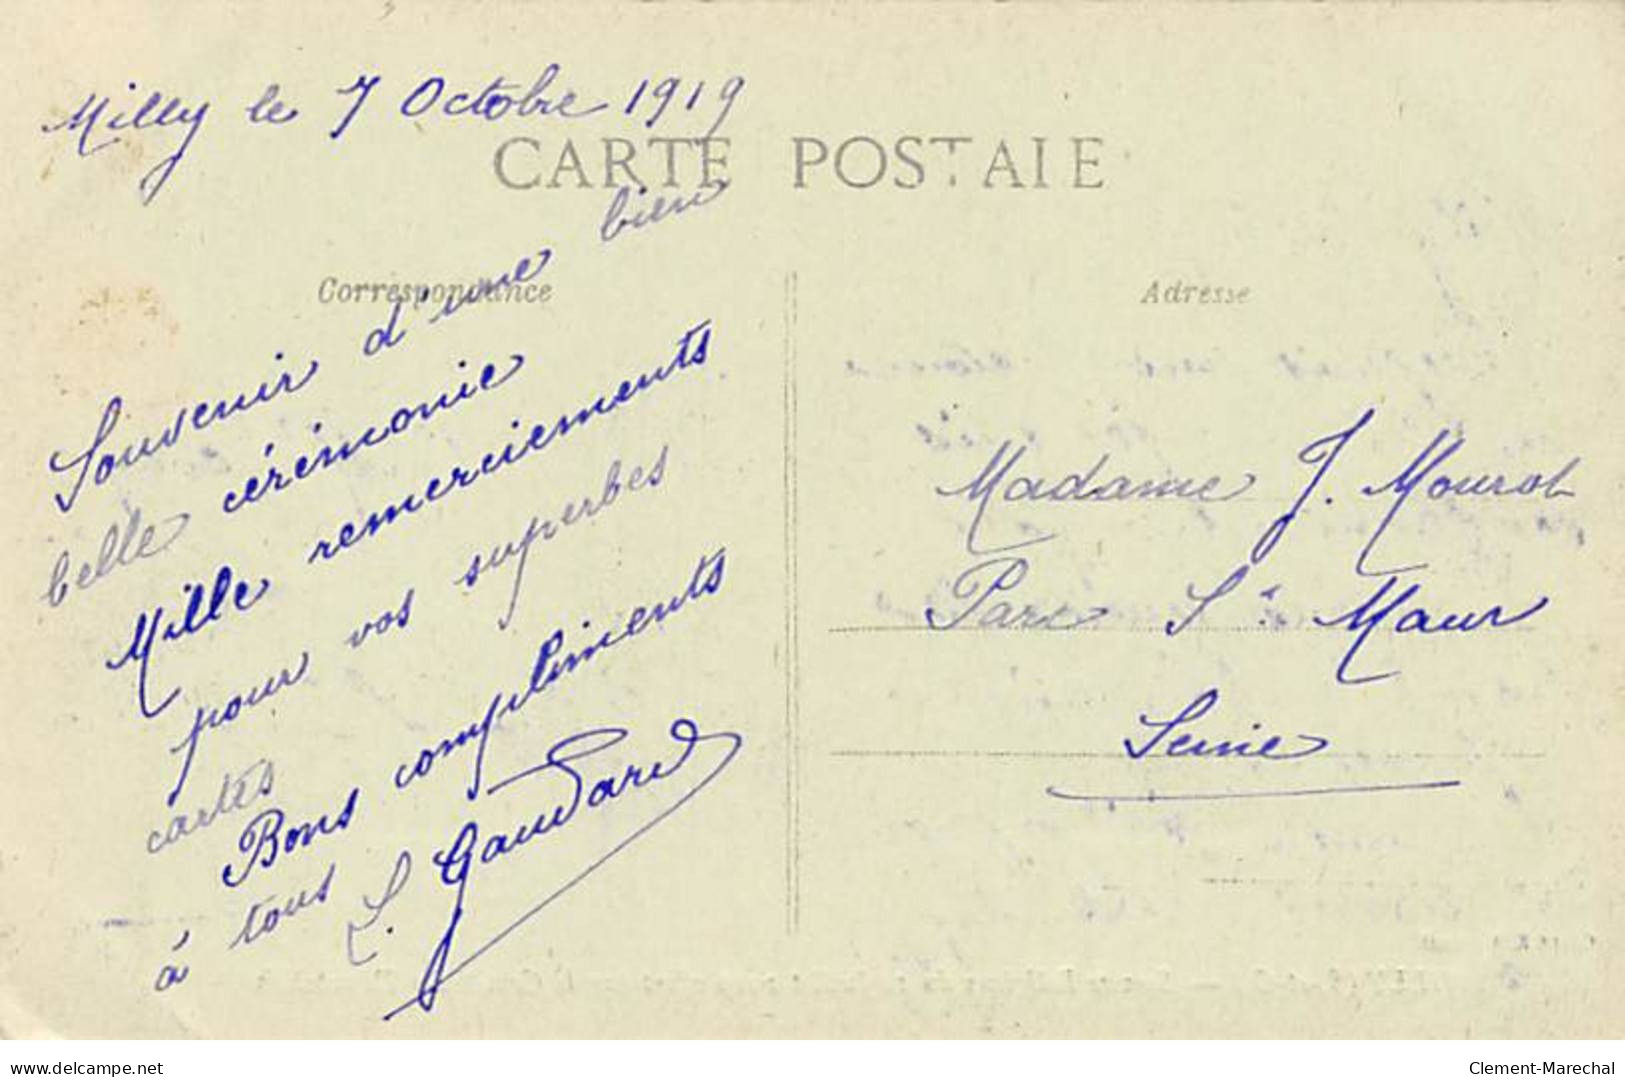 Milly le 7 Octobre 1919
CARTE POSTALE
Correspondance
Souvenir d'une bien
belle cérémonie
Mille remerciements
pour vos superbes
cartes
Bons compliments
à tous
L. Gaudard
Adresse
Madame J. Mourot
Parc St. Maur
Seine
delcampe.net
Clement-Marechal